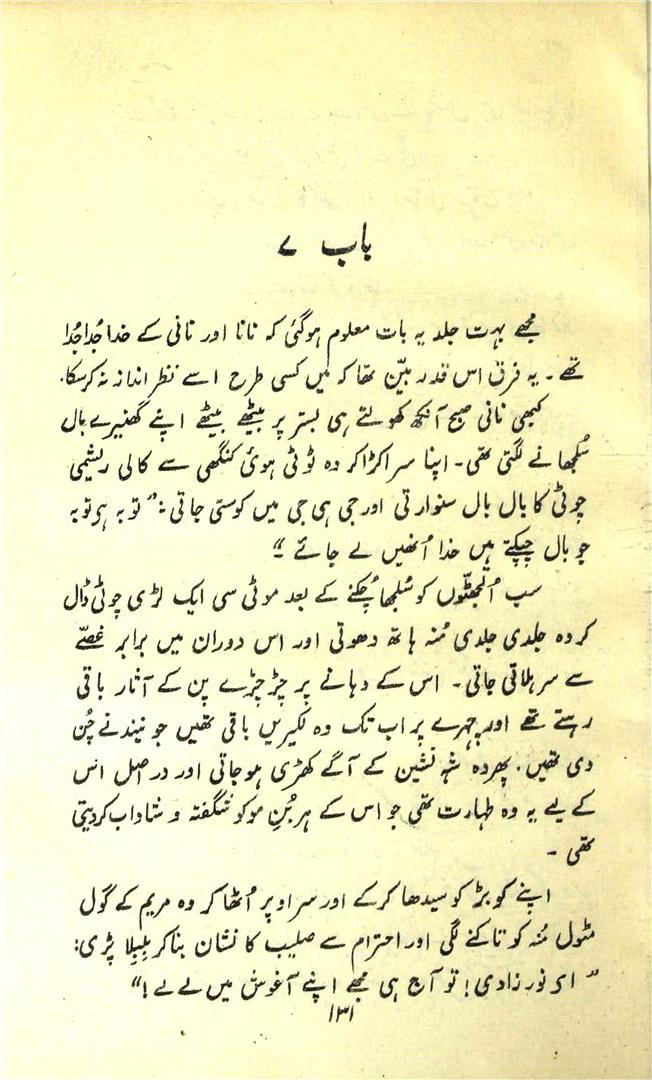 باب ۷
مجھے بہت جلد یہ بات معلوم ہوگئی کہ نانا اور نانی کے خدا جُدا جُدا
تھے ۔ یہ فرق اس قدر مبیّن تھا کہ میں کسی طرح اسے نظر انداز نہ کرسکا۔
کبھی نانی صبح آنکھ کھولتے ہی بستر پر بیٹھے بیٹھے اپنے گھنیرے بال
سُلجھانے لگتی تھی۔ اپنا سر اکڑا کر وہ ٹوٹی ہوئی کنگھی سے کالی ریشمی
چوٹی کا بال بال سنوارتی اور جی ہی جی میں کوستی جاتی : ” توبہ ہی توبہ
جو بال چپکتے ہیں خدا اُنھیں لے جائے ۔“
سب اُلجھٹّوں کو سُلجھا چُکنے کے بعد موٹی سی ایک لڑی چوٹی ڈال
کر وہ جلدی جلدی مُنہ ہاتھ دھوتی اور اس دوران میں برابر غصّے
سے سر ہلاتی جاتی۔ اس کے دہانے پر چڑچڑے پن کے آثار باقی
رہتے تھے اور چہرے پر اب تک وہ لکیریں باقی تھیں جو نیند نے چُن
دی تھیں۔ پھر وہ شہ نشین کے آگے کھڑی ہوجاتی اور در اصل اس
کے لیے یہ وہ طہارت تھی جو اس کے ہر بُنِ مو کو شگفتہ و شاداب کردیتی
تھی ۔
اپنے کوبڑ کو سیدھا کرکے اور سر اوپر اُٹھا کر وہ مریم کے گول
مٹول مُنہ کو تاکنے لگی اور احترام سے صلیب کا نشان بنا کر بِلبِلا پڑی :
” ای نور زادی ! تو آج ہی مجھے اپنے آغوش میں لے لے !“
۱۳۱